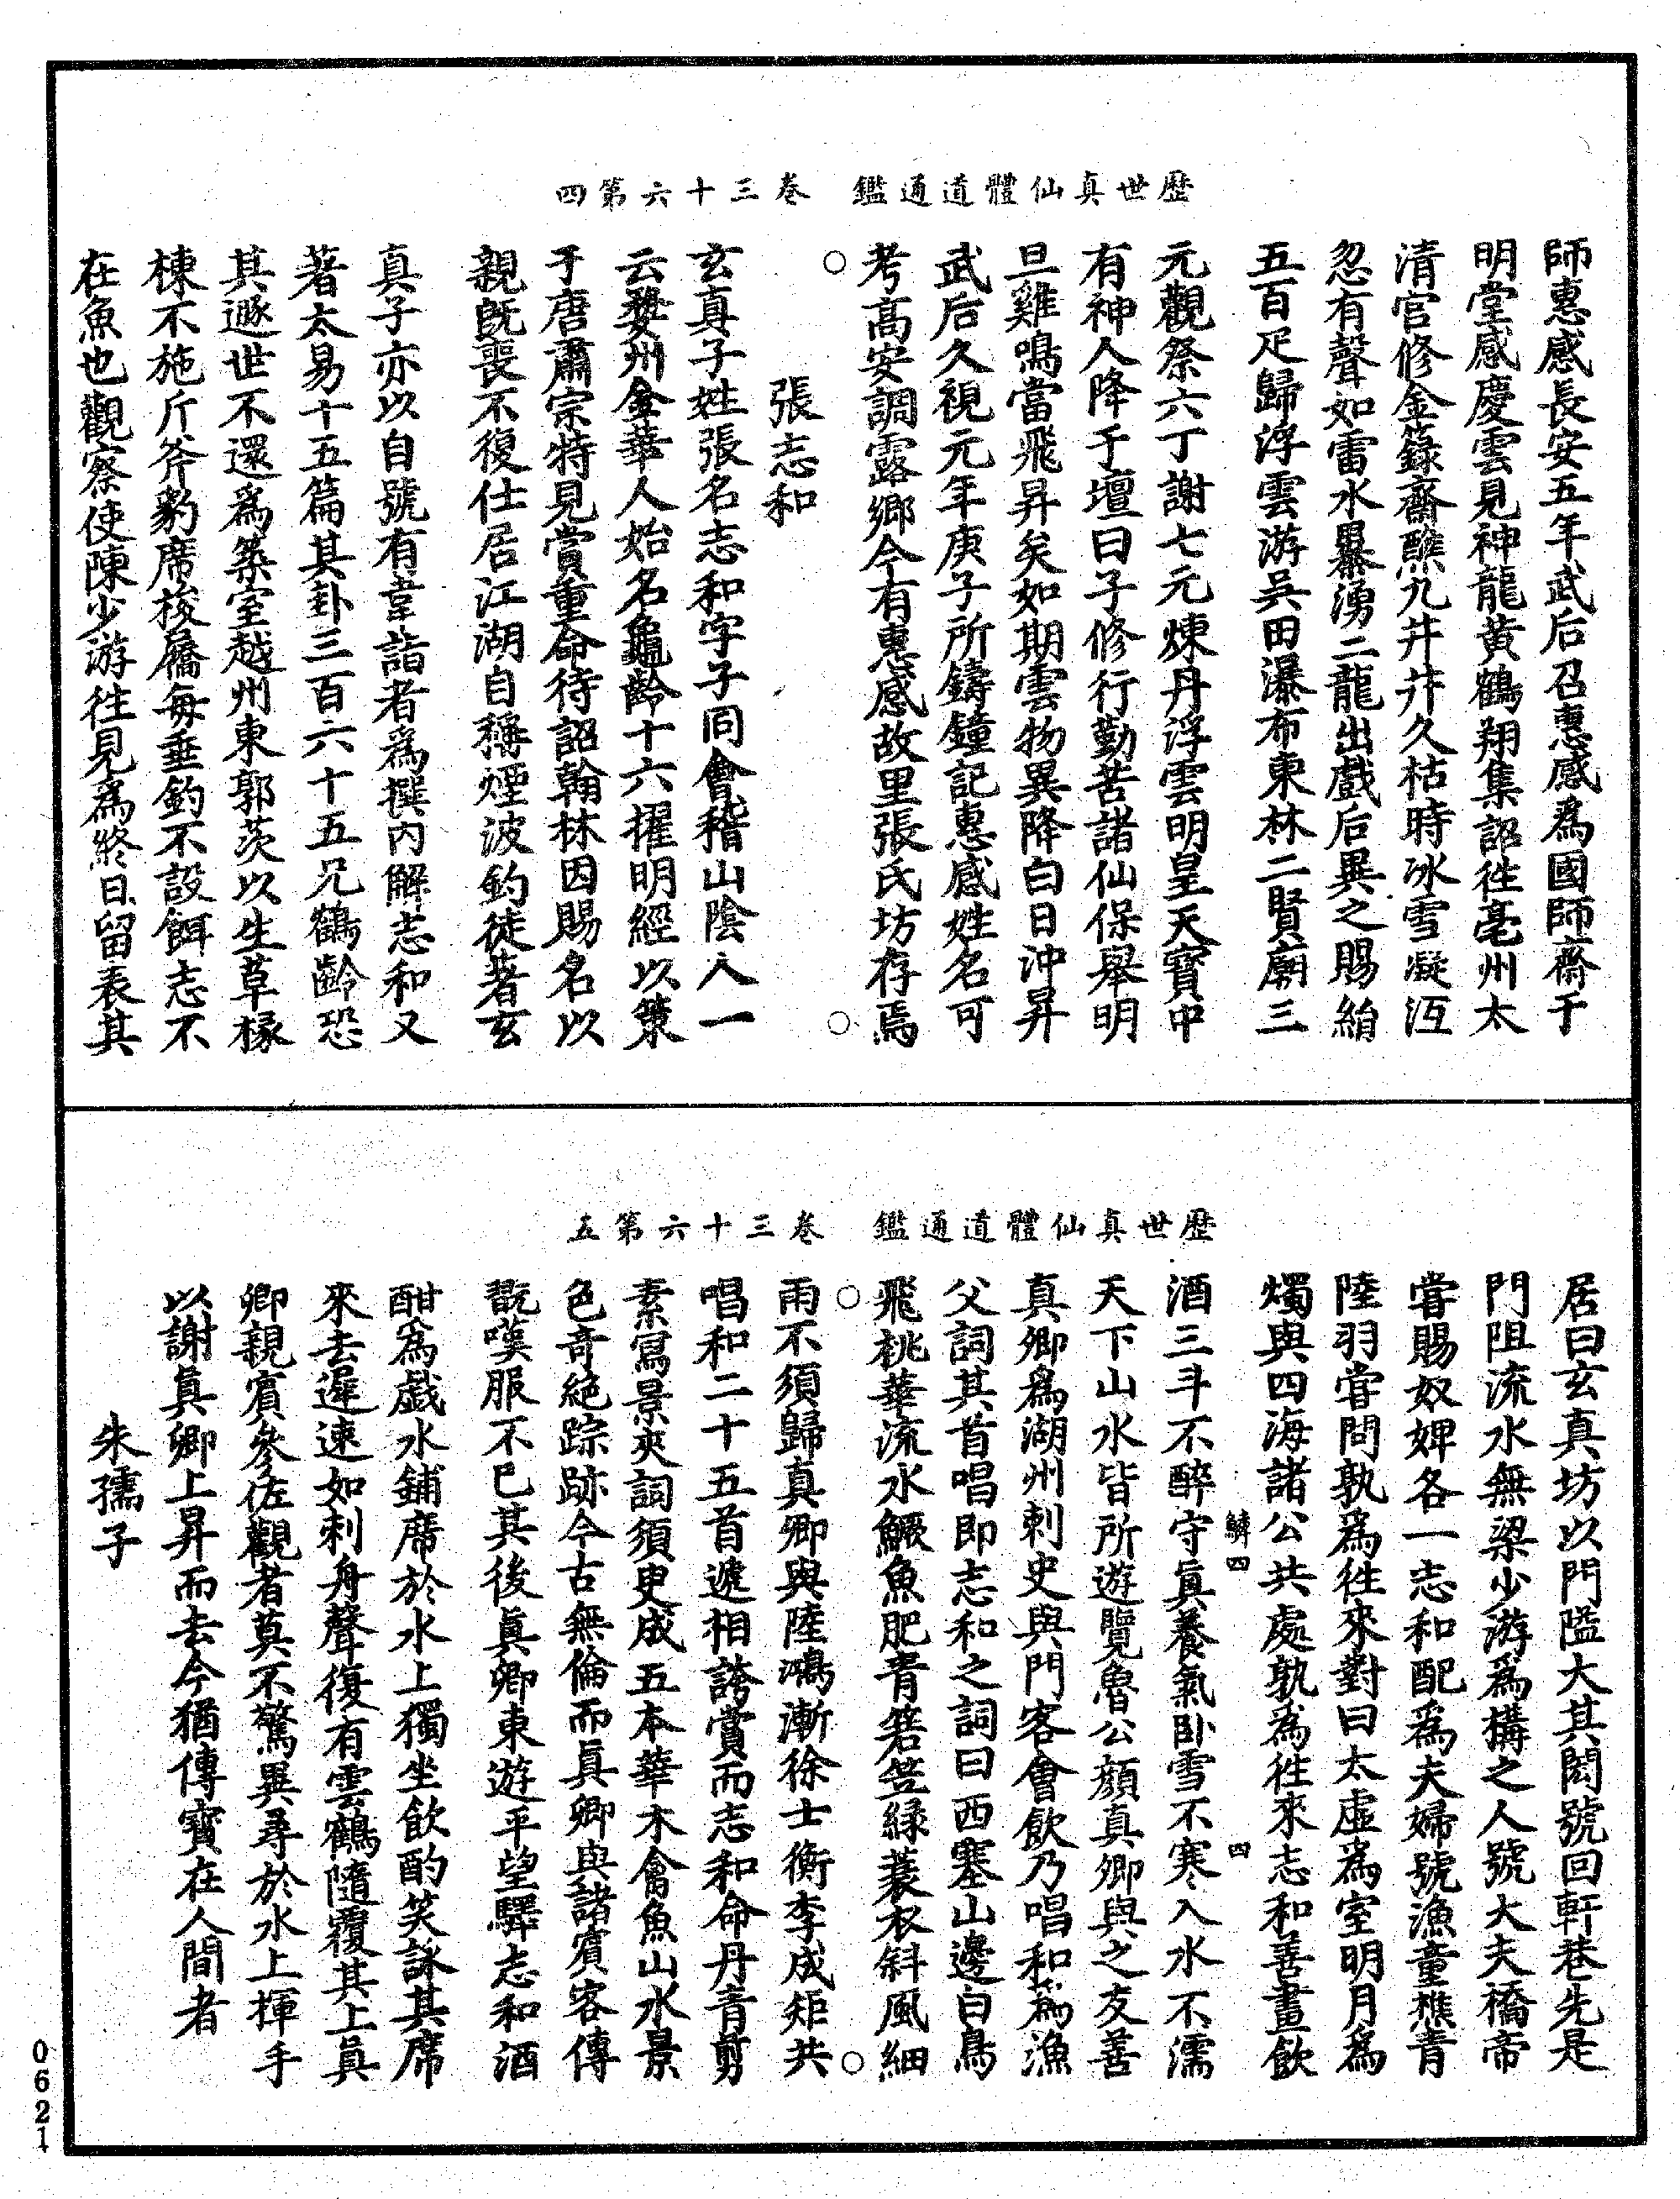 歷世真仙體道通鑑　卷三十六第四
師惠感長安五年武后召惠感為國師齋于
明堂感慶雲見神龍黃鶴翔集詔往亳州太
清宮修金籙齋醮九井井久枯時冰雪凝沍
忽有聲如雷水暴湧二龍出戲后異之賜絹
五百疋歸浮雲游吳田瀑布東林二賢廟三
元觀祭六丁謝七元煉丹浮雲明皇天寶中
有神人降于壇曰子修行勤苦諸仙保舉明
旦雞鳴當飛昇矣如期雲物異降白日沖昇
武后久視元年庚子所鑄鐘記惠感姓名可
考高安調露鄉今有惠感故里張氏坊存焉
張志和
玄真子姓張名志和字子同會稽山陰人一
云婺州金華人始名龜齡十六擢明經以策
于唐肅宗特見賞重命待詔翰林因賜名以
親既喪不復仕居江湖自稱煙波釣徒著玄
真子亦以自號有韋詣者為撰內解志和又
著太易十五篇其卦三百六十五兄鶴齡恐
其遯世不還為築室越州東郭茨以生草椽
棟不施斤斧豹席棕屩每垂釣不設餌志不
在魚也觀察使陳少游往見為終日留表其
歷世真仙體道通鑑　卷三十六第五
居曰玄真坊以門隘大其閎號回軒巷先是
門阻流水無梁少游為搆之人號大夫橋帝
嘗賜奴婢各一志和配為夫婦號漁童樵青
陸羽嘗問孰為往來對曰太虛為室明月為
燭與四海諸公共處孰為往來志和善畫飲
鱗四　四
酒三斗不醉守真養氣臥雪不寒入水不濡
天下山水皆所遊覽魯公顏真卿與之友善
真卿為湖州刺史與門客會飲乃唱和為漁
父詞其首唱即志和之詞曰西塞山邊白鳥
飛桃華流水鱖魚肥青箬笠綠蓑衣斜風細
雨不須歸真卿與陸鴻漸徐士衡李成矩共
唱和二十五首遞相誇賞而志和命丹青剪
素寫景夾詞須臾成五本華木禽魚山水景
色奇絕踪跡今古無倫而真卿與諸賓客傳
翫嘆服不已其後真卿東遊平望驛志和酒
酣為戲水鋪席於水上獨坐飲酌笑詠其席
來去遲速如刺舟聲復有雲鶴隨覆其上真
卿親賓參佐觀者莫不驚異尋於水上揮手
以謝真卿上昇而去今猶傳寶在人間者
朱孺子
0621